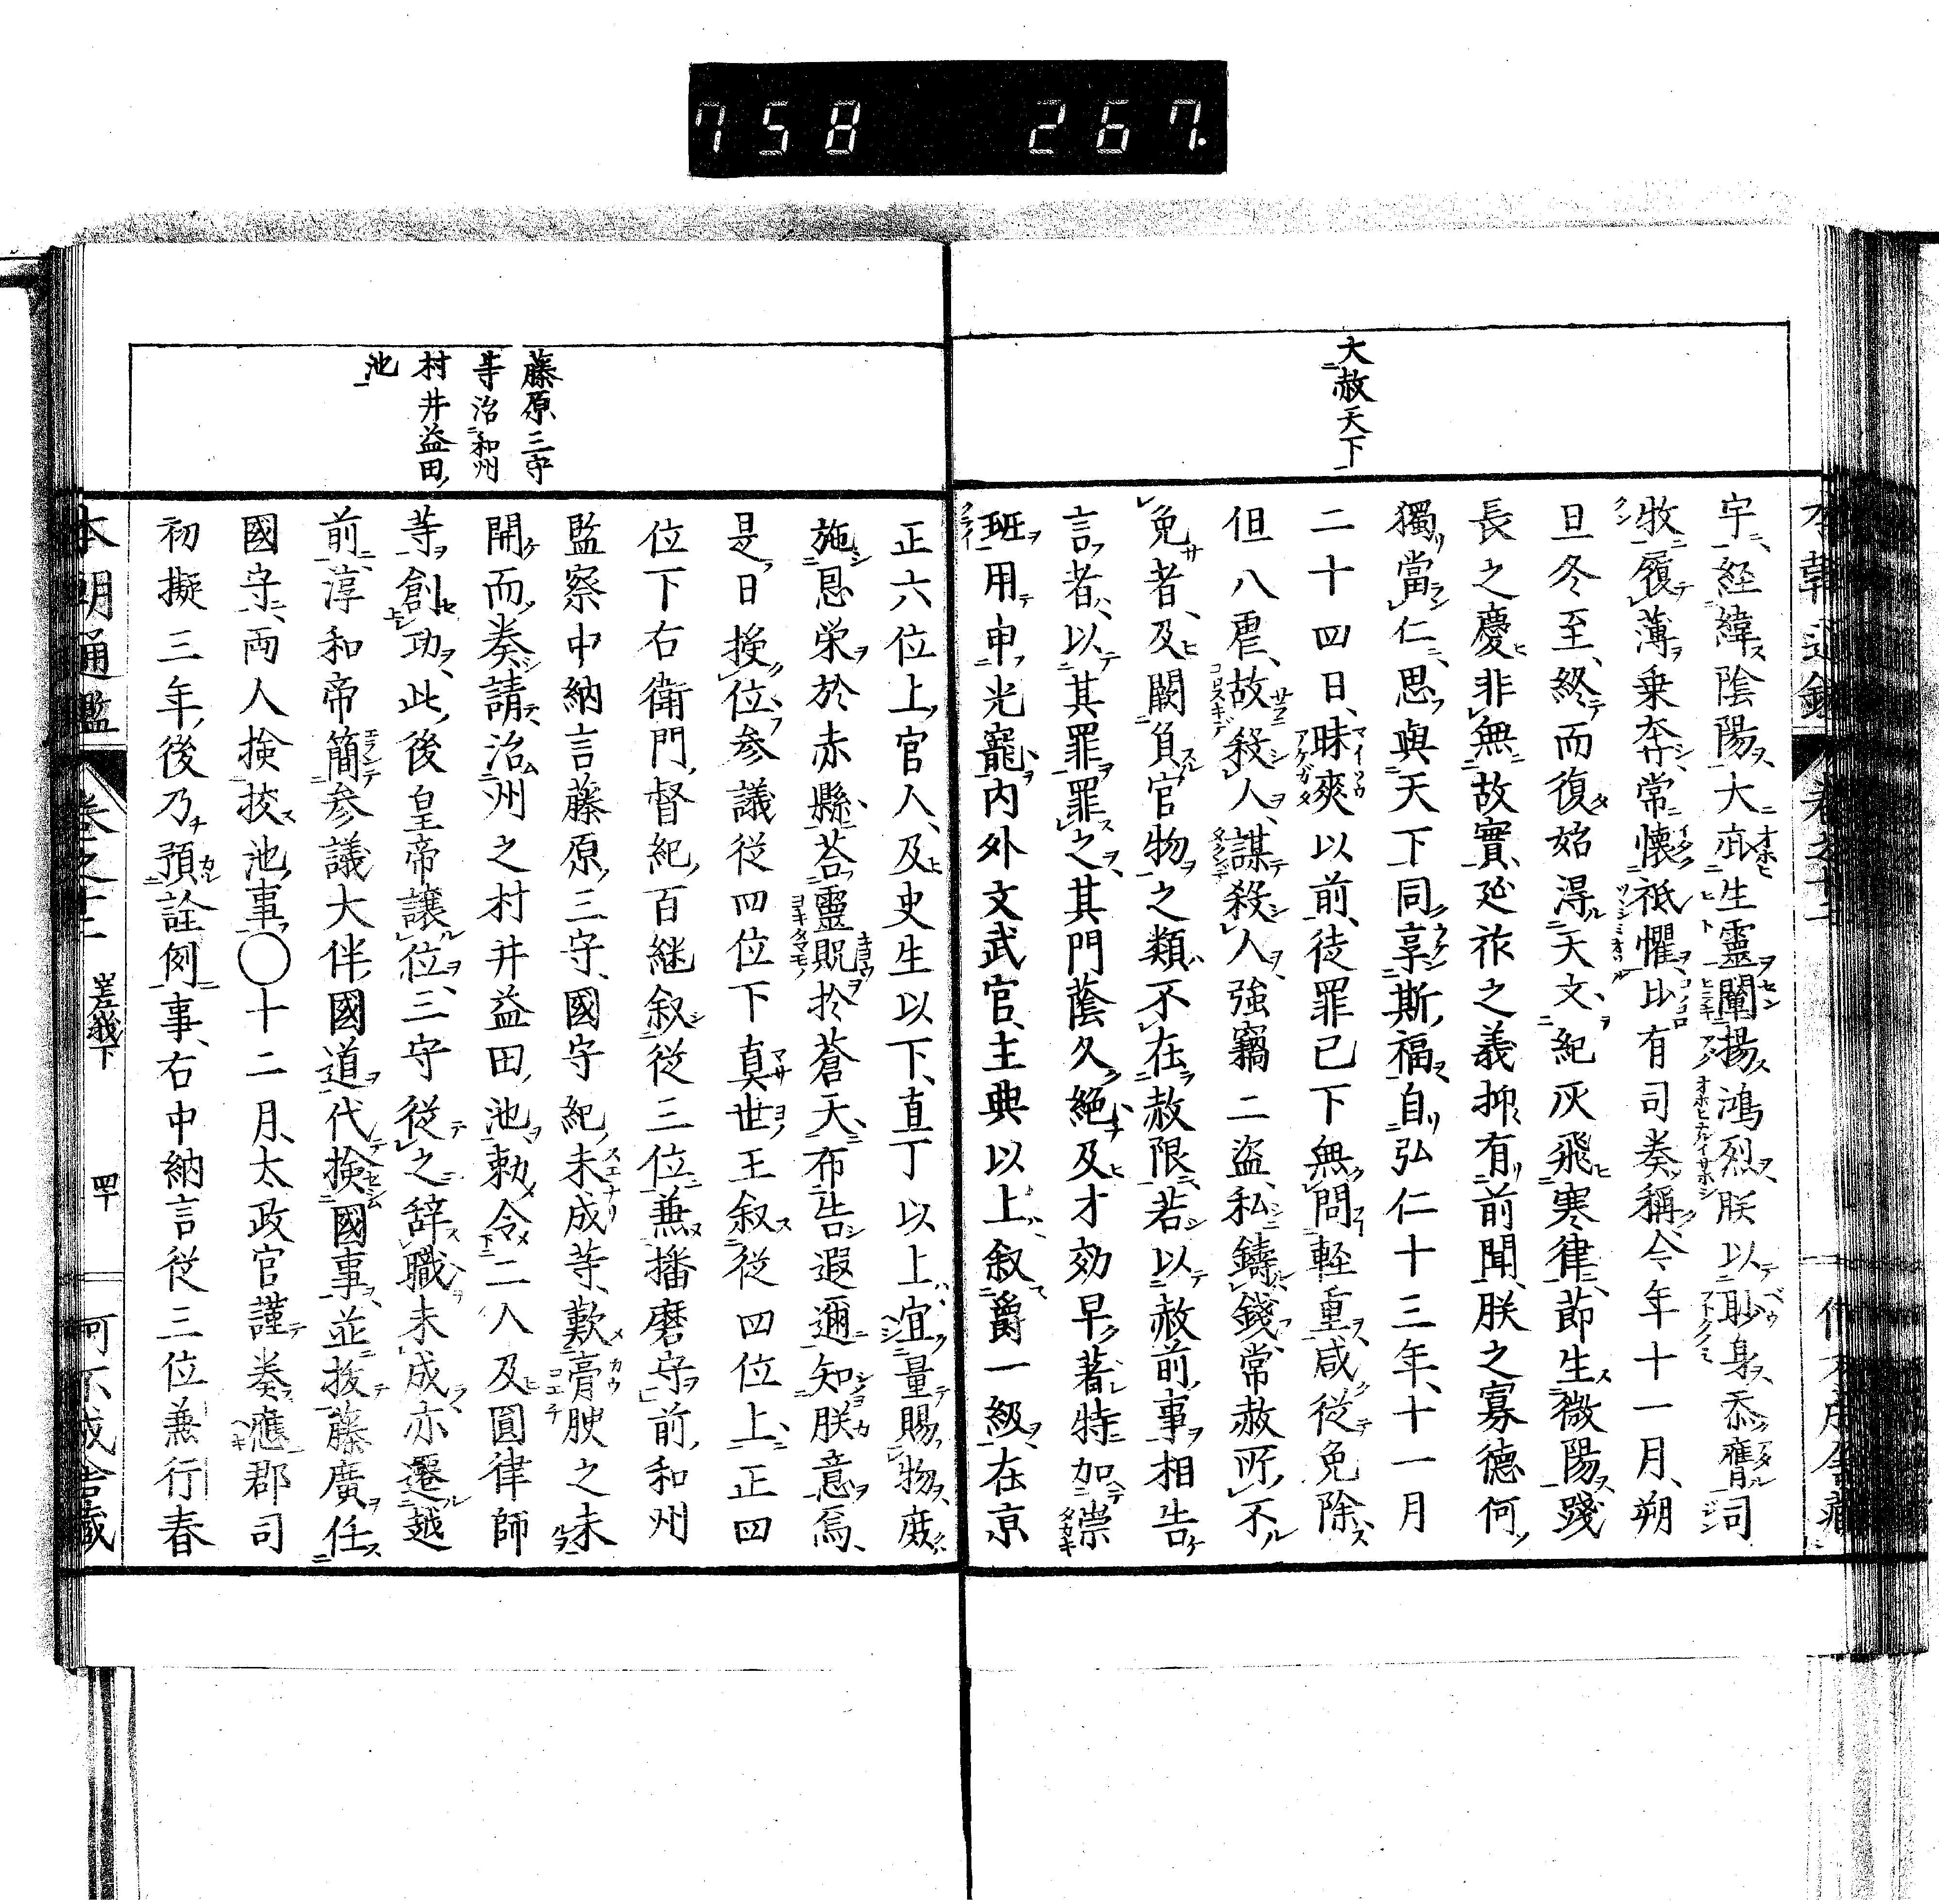 758 267.
大赦天下
宇経緯陰陽大庇生靈闡揚鴻烈朕以眇身忝膺司
牧履薄乗奔常懐祗懼比有司奏稱今年十一月朔
旦冬至終而復始得天文紀灰飛寒律節生微陽踐
長之慶非無故實延祚之義抑有前聞朕之寡德何
獨當仁思與天下同享斯福自弘仁十三年十一月
二十四日昧爽以前徒罪已下無問軽重咸従免除
但八虐故殺人謀殺人強竊二盗私鑄錢常赦所不
免者及闕負官物之類不在赦限若以赦前事相告
言者以其罪罪之其門蔭久絶及才効早著特加崇
班用申光寵内外文武官主典以上叙爵一級在京
藤原三守
等治和州
村井益田
池
正六位上官人及史生以下直丁以上宜量賜物庶
施恩栄於赤縣荅靈貺於蒼天布告遐邇知朕意焉
是日授位参議従四位下真世王叙従四位上正四
位下右衛門督紀百継叙従三位兼播磨守前和州
監察中納言藤原三守國守紀末成等歎膏腴之未
開而奏請治州之村井益田池勅令二人及圓律師
等創功此後皇帝讓位三守従之辞職末成亦遷越
前淳和帝簡参議大伴國道代撿國事並拔藤廣任
國守両人撿挍池事○十二月太政官謹奏應郡司
初擬三年後乃預詮例事右中納言従三位兼行春
本朝通鑑 巻之十二 嵯峨下 四